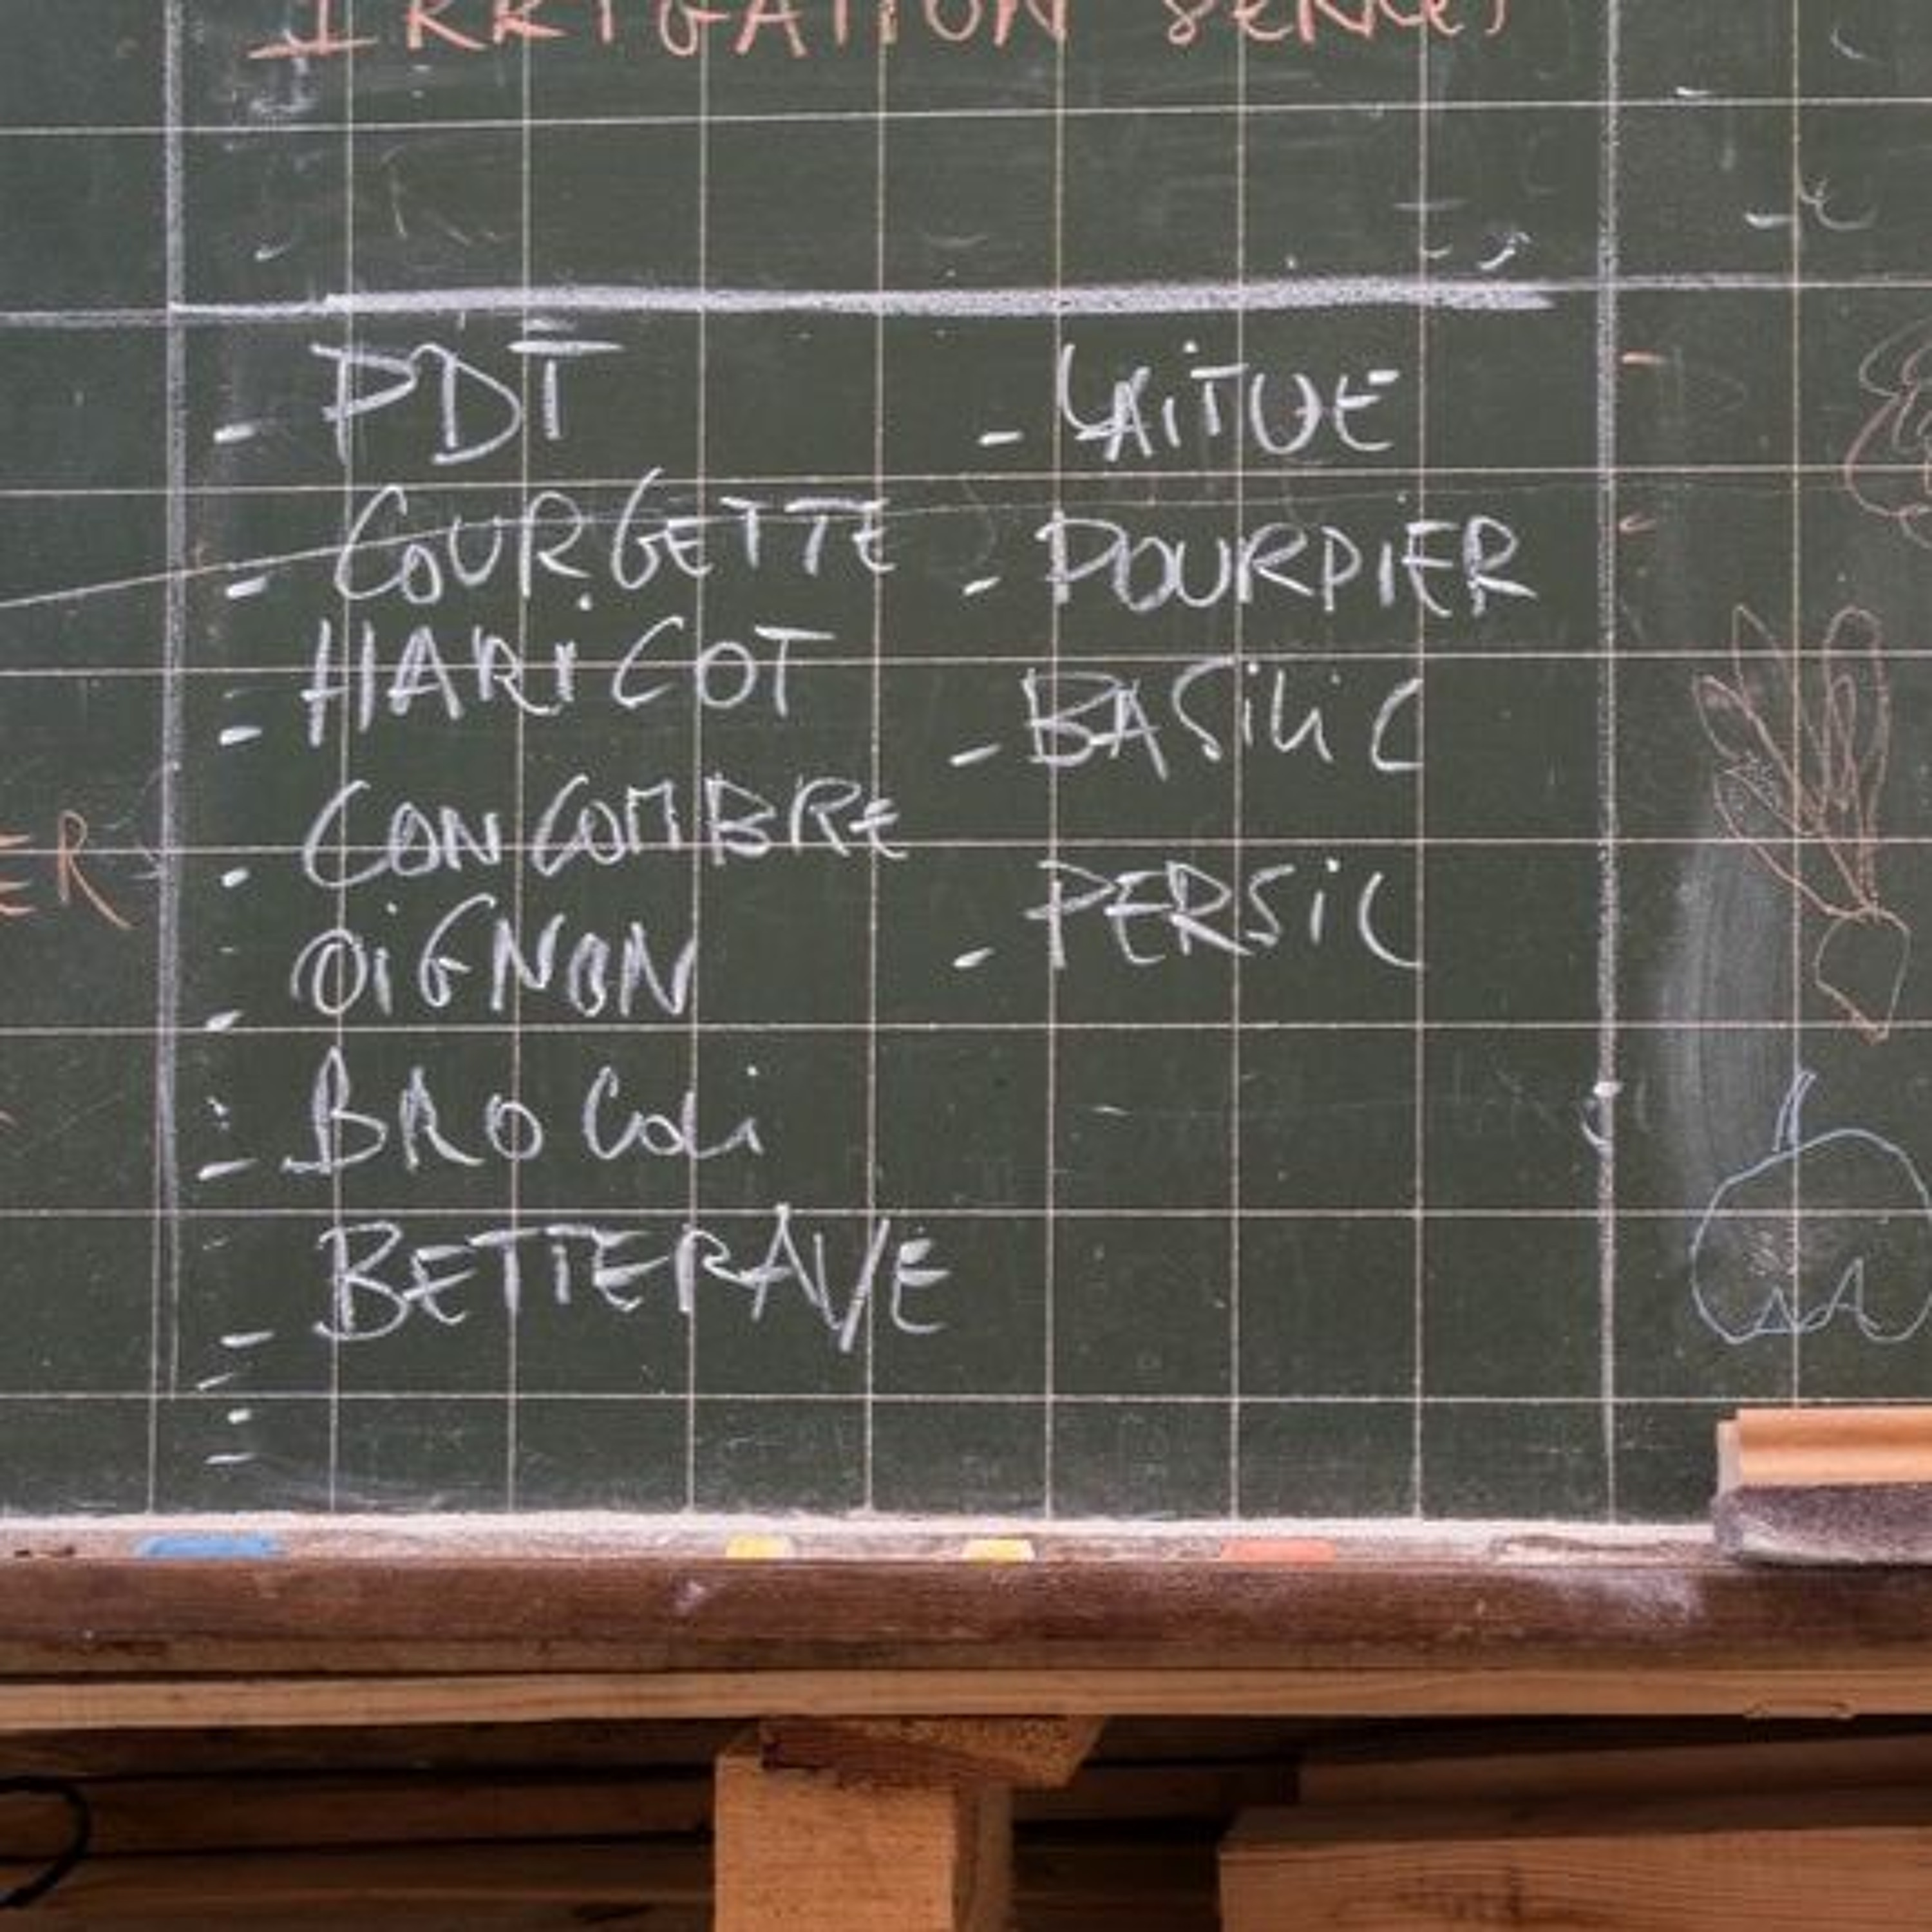 IRRIGATION SERRES
- PDT
- COURGETTE
- HARICOT
- CONCOMBRE
- OIGNON
- BROCOLI
- BETTERAVE
- LAITUE
- POURPIER
- BASILIC
- PERSIL
ER